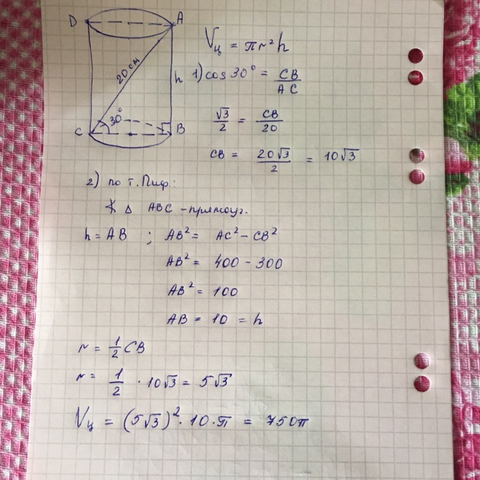 D A
20 см
h
30°
C B
Vц = πr²h
1) cos 30° = CB/AC
√3/2 = CB/20
CB = 20√3/2 = 10√3
2) по т. Пиф:
∆ ABC - прямоуг.
h = AB ; AB² = AC² - CB²
AB² = 400 - 300
AB² = 100
AB = 10 = h
r = 1/2 CB
r = 1/2 · 10√3 = 5√3
Vц = (5√3)² · 10 · π = 750π